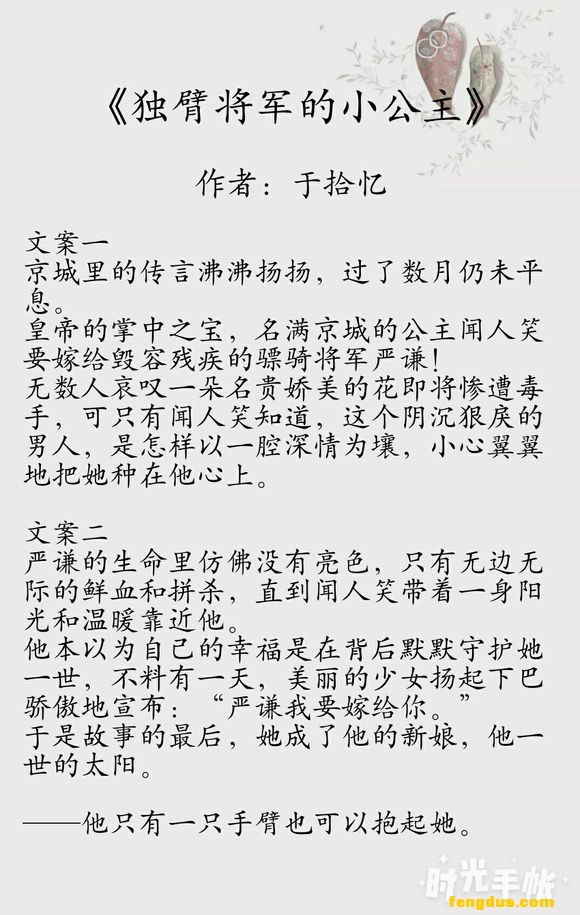 《独臂将军的小公主》
作者：于拾忆
文案一
京城里的传言沸沸扬扬，过了数月仍未平
息。
皇帝的掌中之宝，名满京城的公主闻人笑
要嫁给毁容残疾的骠骑将军严谦！
无数人哀叹一朵名贵娇美的花即将惨遭毒
手，可只有闻人笑知道，这个阴沉狠戾的
男人，是怎样以一腔深情为壤，小心翼翼
地把她种在他心上。
文案二
严谦的生命里仿佛没有亮色，只有无边无
际的鲜血和拼杀，直到闻人笑带着一身阳
光和温暖靠近他。
他本以为自己的幸福是在背后默默守护她
一世，不料有一天，美丽的少女扬起下巴
骄傲地宣布：“严谦我要嫁给你。”
于是故事的最后，她成了他的新娘，他一
世的太阳。
——他只有一只手臂也可以抱起她。
时光手帐
fengdus.com